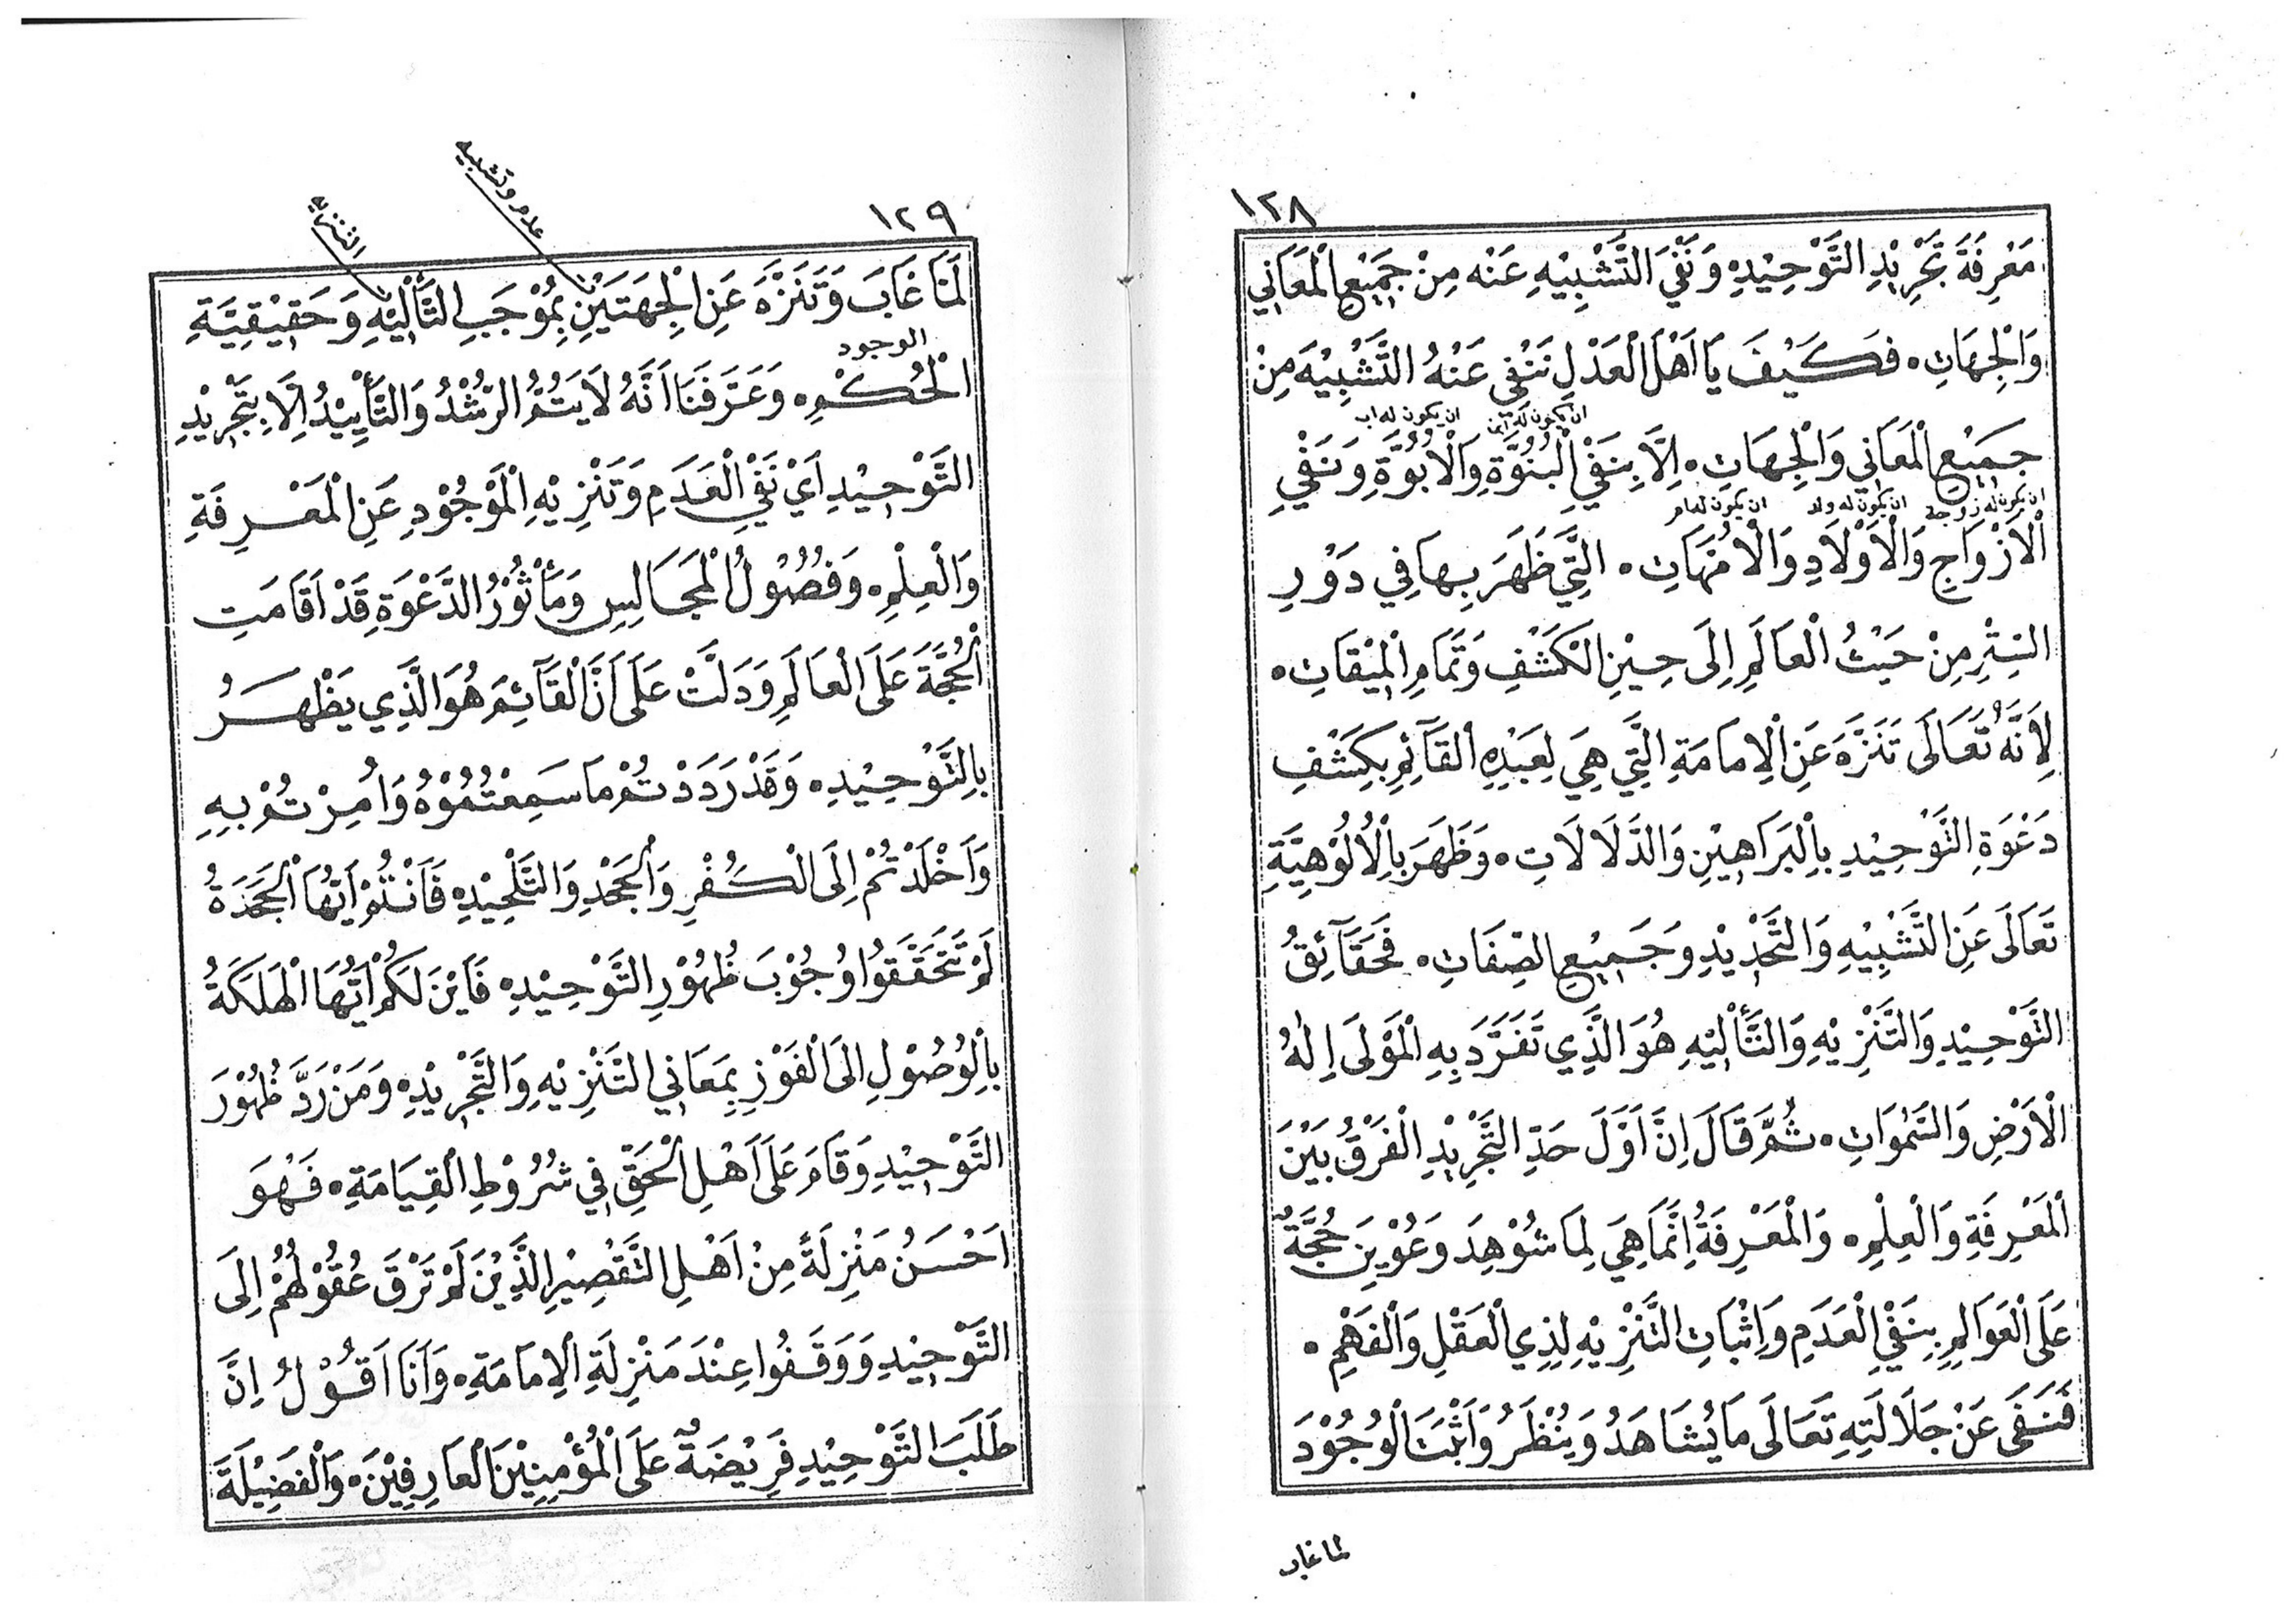 ١٢٨
مَعْرِفَةَ تَجْرِيْدِ التَّوْحِيْدِ وَنَفْيَ التَّشْبِيْهِ عَنْه مِنْ جَمِيْعِ الْمَعَانِي
وَالْجِهَاتِ ٠ فَكَيْفَ يَا اَهْلَ الْعَدْلِ نَنْفِي عَنْهُ التَّشْبِيْهَ مِنْ
ان يكون له ابن ان يكون له اب
جَمِيْعِ الْمَعَانِي وَالْجِهَاتِ ٠ اِلَّا بِنَفْيِ الْبُنُوَّةِ وَالْاُبُوَّةِ وَنَفْيِ
ان يكون له زوجة ان يكون له ولد ان يكون له ام
الْاَزْوَاجِ وَالْاَوْلَادِ وَالْاُمَّهَاتِ ٠ الَّتِي ظَهَرَ بِهَا فِي دَوْرِ
السِّتْرِ مِنْ حَيْثُ الْعَالَمِ اِلَى حِيْنِ الْكَشْفِ وَتَمَامِ الْمِيْقَاتِ ٠
لِاَنَّهُ تَعَالَى تَنَزَّهَ عَنِ الْاِمَامَةِ الَّتِي هِيَ لِعَبْدِهِ الْقَآئِمِ بِكَشْفِ
دَعْوَةِ التَّوْحِيْدِ بِالْبَرَاهِيْنِ وَالدَّلَالَاتِ ٠ وَظَهَرَ بِالْاُلُوْهِيَّةِ
تَعَالَى عَنِ التَّشْبِيْهِ وَالتَّحْدِيْدِ وَجَمِيْعِ الصِّفَاتِ ٠ فَحَقَآئِقُ
التَّوْحِيْدِ وَالتَّنْزِيْهِ وَالتَّأْلِيْهِ هُوَ الَّذِي تَفَرَّدَ بِهِ الْمَوْلَى اِلٰهُ
الْاَرْضِ وَالسَّمٰوَاتِ ٠ ثُمَّ قَالَ اِنَّ اَوَّلَ حَدِّ التَّجْرِيْدِ الْفَرْقُ بَيْنَ
الْمَعْرِفَةِ وَالْعِلْمِ ٠ وَالْمَعْرِفَةُ اِنَّمَا هِيَ لِمَا شُوْهِدَ وَعُوْيِنَ حُجَّةً
عَلَى الْعَوَالِمِ بِنَفْيِ الْعَدَمِ وَاِثْبَاتِ التَّنْزِيْهِ لِذِي الْعَقْلِ وَالْفَهْمِ ٠
فَنَفَى عَنْ جَلَالَتِهِ تَعَالَى مَا يُشَاهَدُ وَيُنْظَرُ وَاَثْبَتَ الْوُجُوْدَ
لما غاب
١٢٩
عدم وتشبيه
التنزيه
لَمَا غَابَ وَتَنَزَّهَ عَنِ الْجِهَتَيْنِ بِمُوْجَبِ التَّأْلِيْهِ وَحَقِيْقِيَّةِ
الوجود
الْحُكْمِ ٠ وَعَرَّفَنَا اَنَّهُ لَا يَتُمُّ الرُّشْدُ وَالتَّأْيِيْدُ اِلَّا بِتَجْرِيْدِ
التَّوْحِيْدِ اَيْ نَفْيِ الْعَدَمِ وَتَنْزِيْهِ الْمَوْجُوْدِ عَنِ الْمَعْرِفَةِ
وَالْعِلْمِ ٠ وَفُصُوْلُ الْمَجَالِسِ وَمَأْثُوْرُ الدَّعْوَةِ قَدْ اَقَامَتِ
الْحُجَّةَ عَلَى الْعَالَمِ وَدَلَّتْ عَلَى اَنَّ الْقَآئِمَ هُوَ الَّذِي يَظْهَرُ
بِالتَّوْحِيْدِ ٠ وَقَدْ رَدَدْتُمْ مَا سَمِعْتُمُوْهُ وَاُمِرْتُمْ بِهِ
وَاَخْلَدْتُمْ اِلَى الْكُفْرِ وَالْجَحْدِ وَالتَّلْحِيْدِ ٠ فَاَنْتُمْ اَيَّتُهَا الْجَحَدَةُ
لَمْ تَحَقَّقُوا وُجُوْبَ ظُهُوْرِ التَّوْحِيْدِ ٠ فَاَيْنَ لَكُمْ اَيَّتُهَا الْهَلَكَةُ
بِالْوُصُوْلِ اِلَى الْفَوْزِ بِمَعَانِي التَّنْزِيْهِ وَالتَّجْرِيْدِ ٠ وَمَنْ رَدَّ ظُهُوْرَ
التَّوْحِيْدِ وَقَامَ عَلَى اَهْلِ الْحَقِّ فِي شُرُوْطِ الْقِيَامَةِ ٠ فَهُوَ
اَحْسَنُ مَنْزِلَةً مِنْ اَهْلِ التَّقْصِيْرِ الَّذِيْنَ لَمْ تَرْقَ عُقُوْلُهُمْ اِلَى
التَّوْحِيْدِ وَوَقَفُوا عِنْدَ مَنْزِلَةِ الْاِمَامَةِ ٠ وَاَنَا اَقُوْلُ اِنَّ
طَلَبَ التَّوْحِيْدِ فَرِيْضَةٌ عَلَى الْمُؤْمِنِيْنَ الْعَارِفِيْنَ ٠ وَالْفَضِيْلَةَ